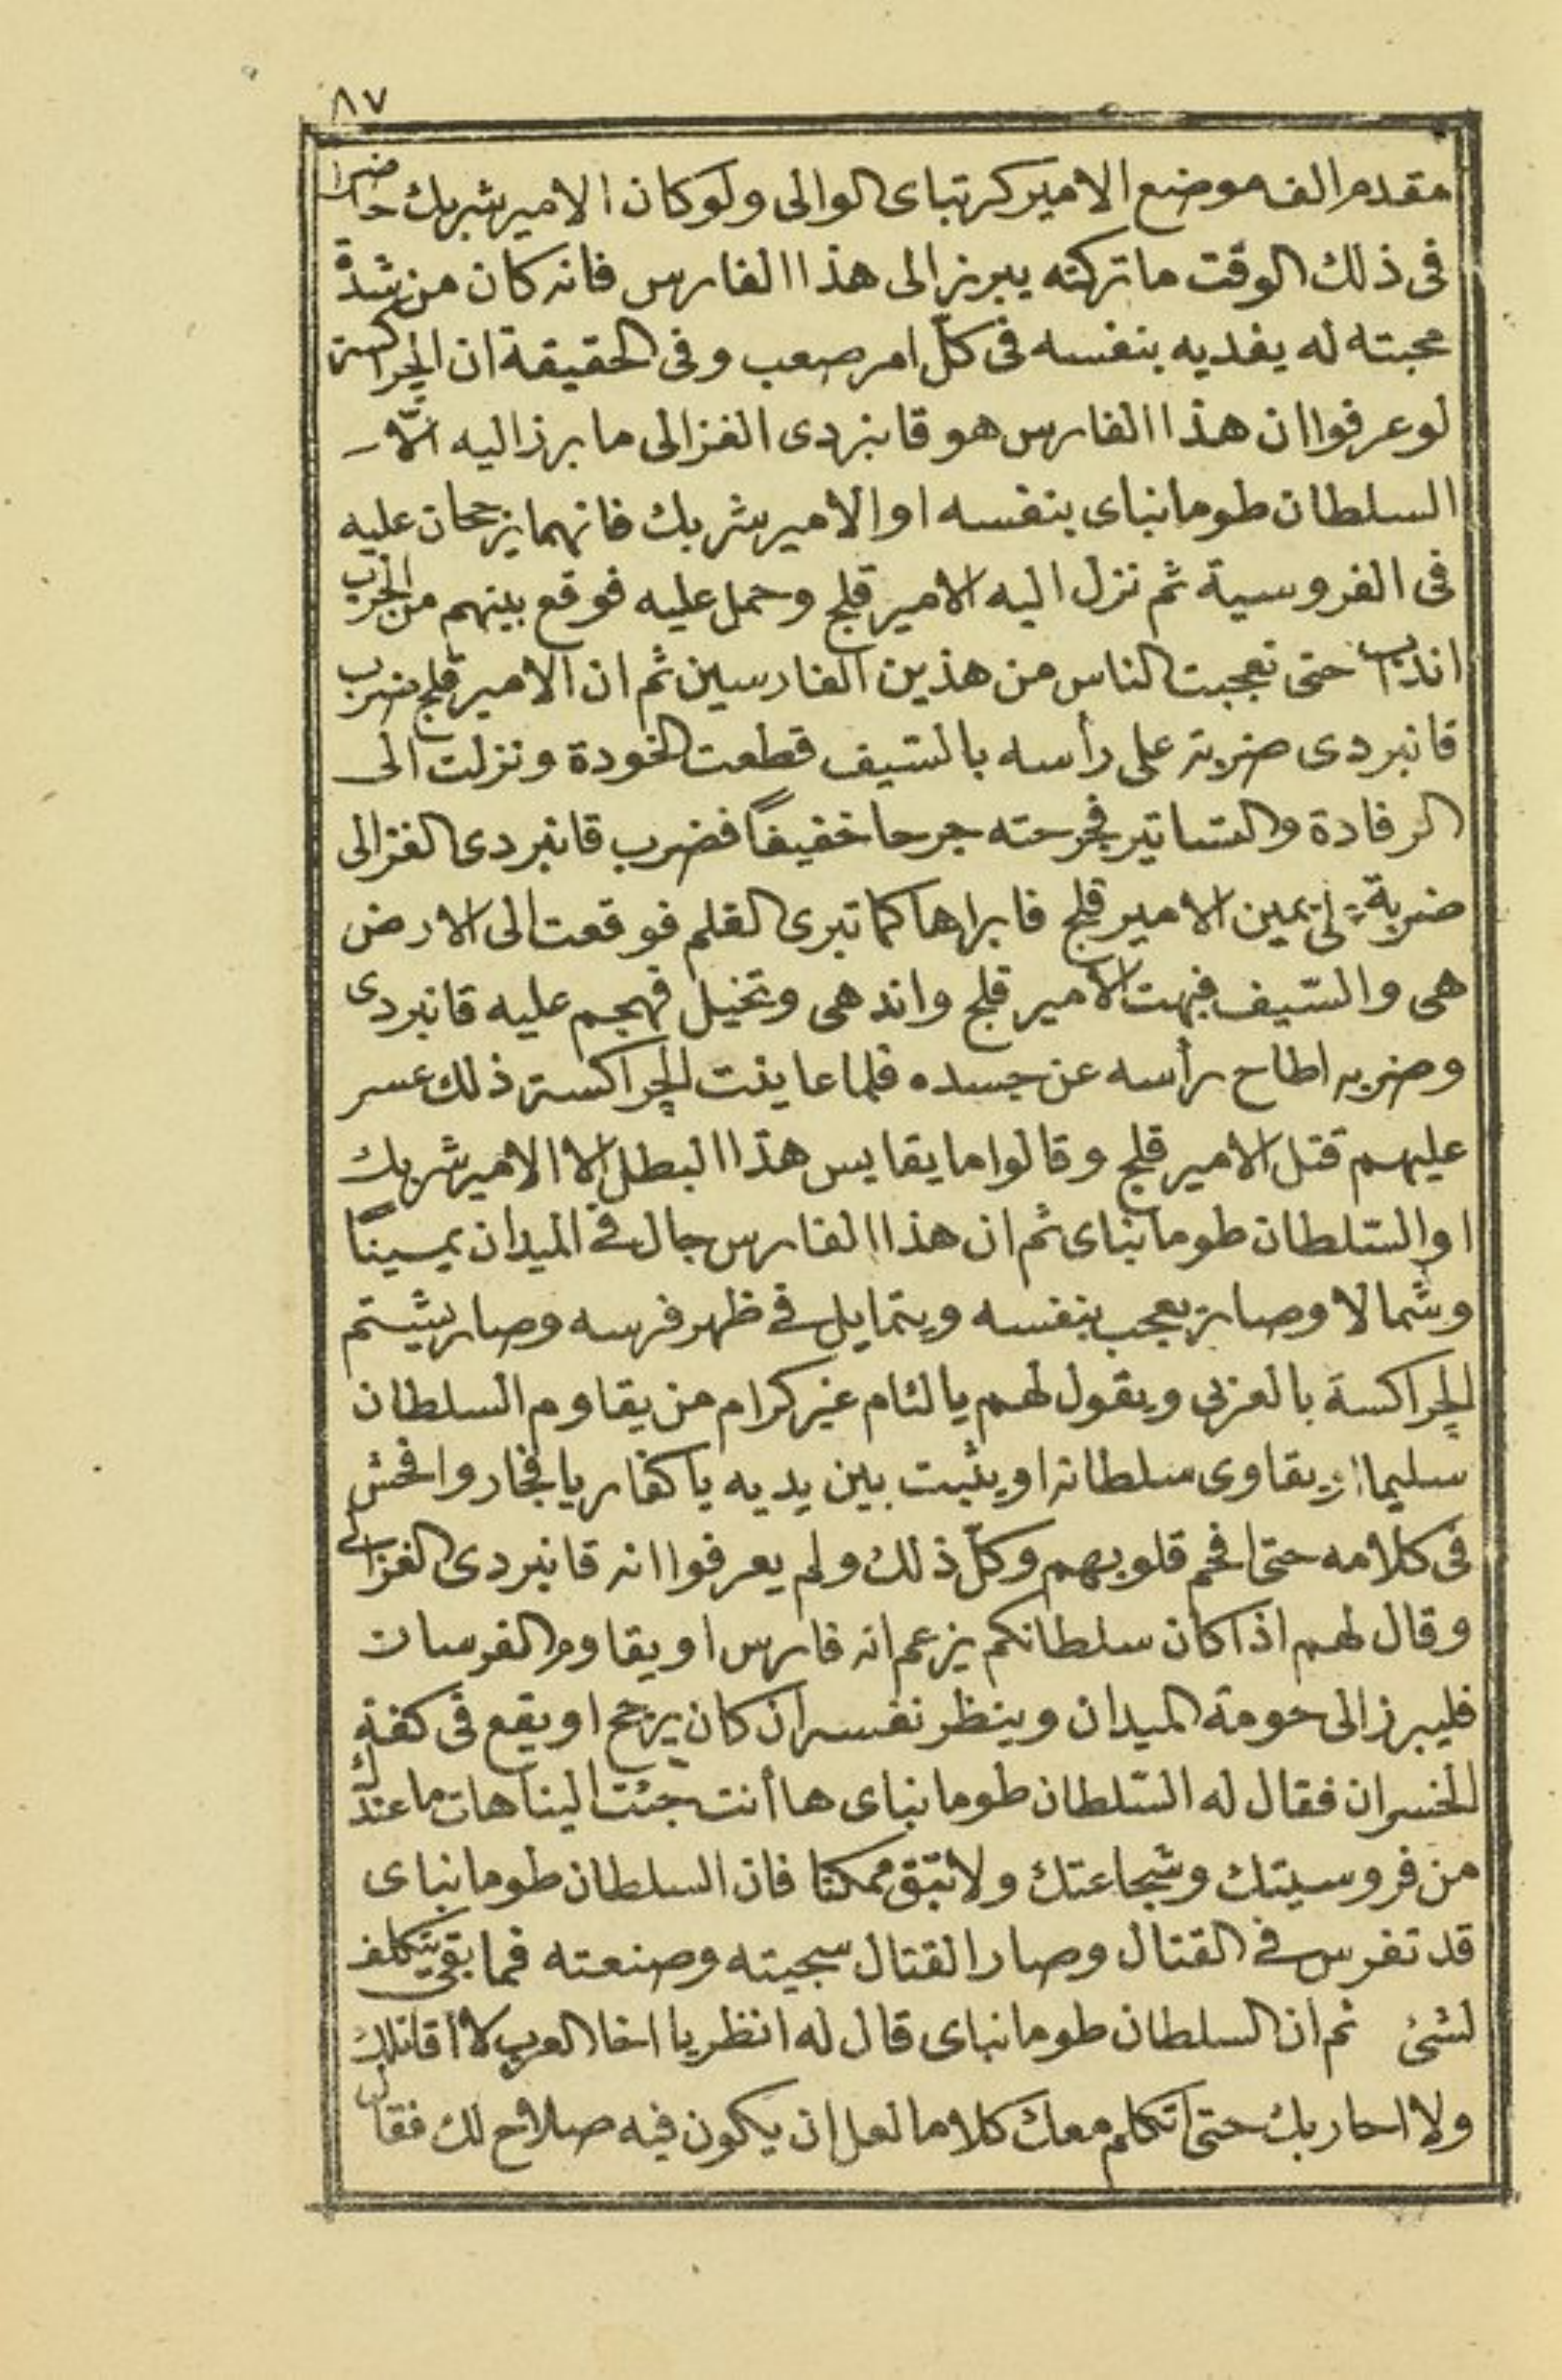 ٨٧
مقدم الف موضع الامير كرتباى الوالى ولو كان الامير شربك حاضرا
فى ذلك الوقت ما تركته يبرز الى هذا الفارس فانه كان من شدة
محبته له يفديه بنفسه فى كلّ امر صعب وفى الحقيقة ان الچراكسة
لو عرفوا ان هذا الفارس هو قانبردى الغزالى ما برز اليه الّا
السلطان طومانباى بنفسه او الامير شربك فانهما يرجحان عليه
فى الفروسية ثم نزل اليه الامير قلج وحمل عليه فوقع بينهم من الحرب
حتى تعجبت الناس من هذين الفارسين ثم ان الامير قلج ضرب
قانبردى ضربة على رأسه بالسّيف قطعت الخودة ونزلت الى
الرفادة والستاتير فجرحته جرحا خفيفاً فضرب قانبردى الغزالى
ضربة يمين الامير قلج فابراها كما تبرى القلم فوقعت الى الارض
هى والسّيف فبهت الامير قلج واندهى وتخيل فهجم عليه قانبردى
وضربه اطاح رأسه عن جسده فلما عاينت الچراكسة ذلك عسر
عليهم قتل الامير قلج وقالوا ما يقايس هذا البطل الا الامير شربك
او السّلطان طومانباى ثم ان هذا الفارس جال فى الميدان يميناً
وشمالا وصار يعجب بنفسه ويتمايل فى ظهر فرسه وصار يشتم
الچراكسة بالعربى ويقول لهم يا لئام غير كرام من يقاوم السلطان
سليما يقاوى سلطانه او يثبت بين يديه يا كفار يا فجار وافحش
فى كلامه حتى افحم قلوبهم وكلّ ذلك ولم يعرفوا انه قانبردى الغزالى
وقال لهم اذا كان سلطانكم يزعم انه فارس او يقاوم الفرسان
فليبرز الى حومة الميدان وينظر نفسه ان كان يرجح او يقع فى كفة
الخسران فقال له السّلطان طومانباى ها أنت جئت الينا هات ما عندك
من فروسيتك وشجاعتك ولا تبق ممكنا فان السلطان طومانباى
قد تفرس فى القتال وصار القتال سجيته وصنعته فما بقى يتكلف
لشئ ثم ان السلطان طومانباى قال له انظر يا اخا العرب لا اقاتلك
ولا احاربك حتى اتكلم معك كلاما لعل ان يكون فيه صلاح لك فقال